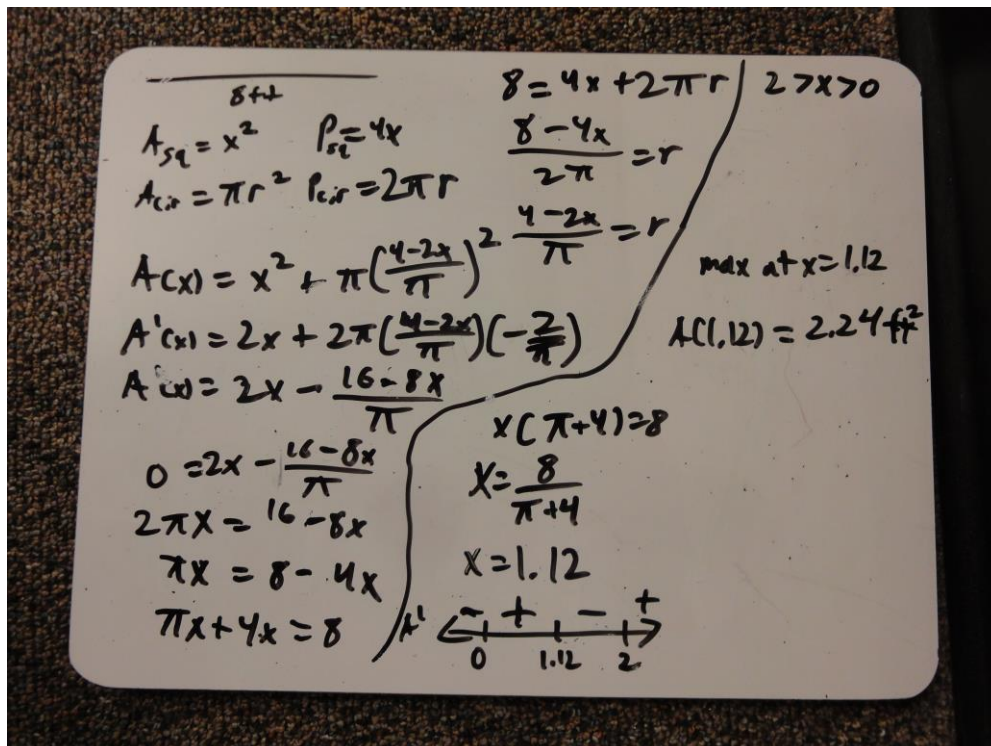 8 ft
A_sq = x²   P_sq = 4x
A_cir = πr²   P_cir = 2πr
A(x) = x² + π((4-2x)/π)²
A'(x) = 2x + 2π((4-2x)/π)(-2/π)
A'(x) = 2x - (16-8x)/π
0 = 2x - (16-8x)/π
2πx = 16 - 8x
πx = 8 - 4x
πx + 4x = 8
8 = 4x + 2πr
(8-4x)/(2π) = r
(4-2x)/π = r
x(π+4) = 8
x = 8/(π+4)
x = 1.12
A' - + - +
0 1.12 2
2 > x > 0
max at x = 1.12
A(1.12) = 2.24 ft²